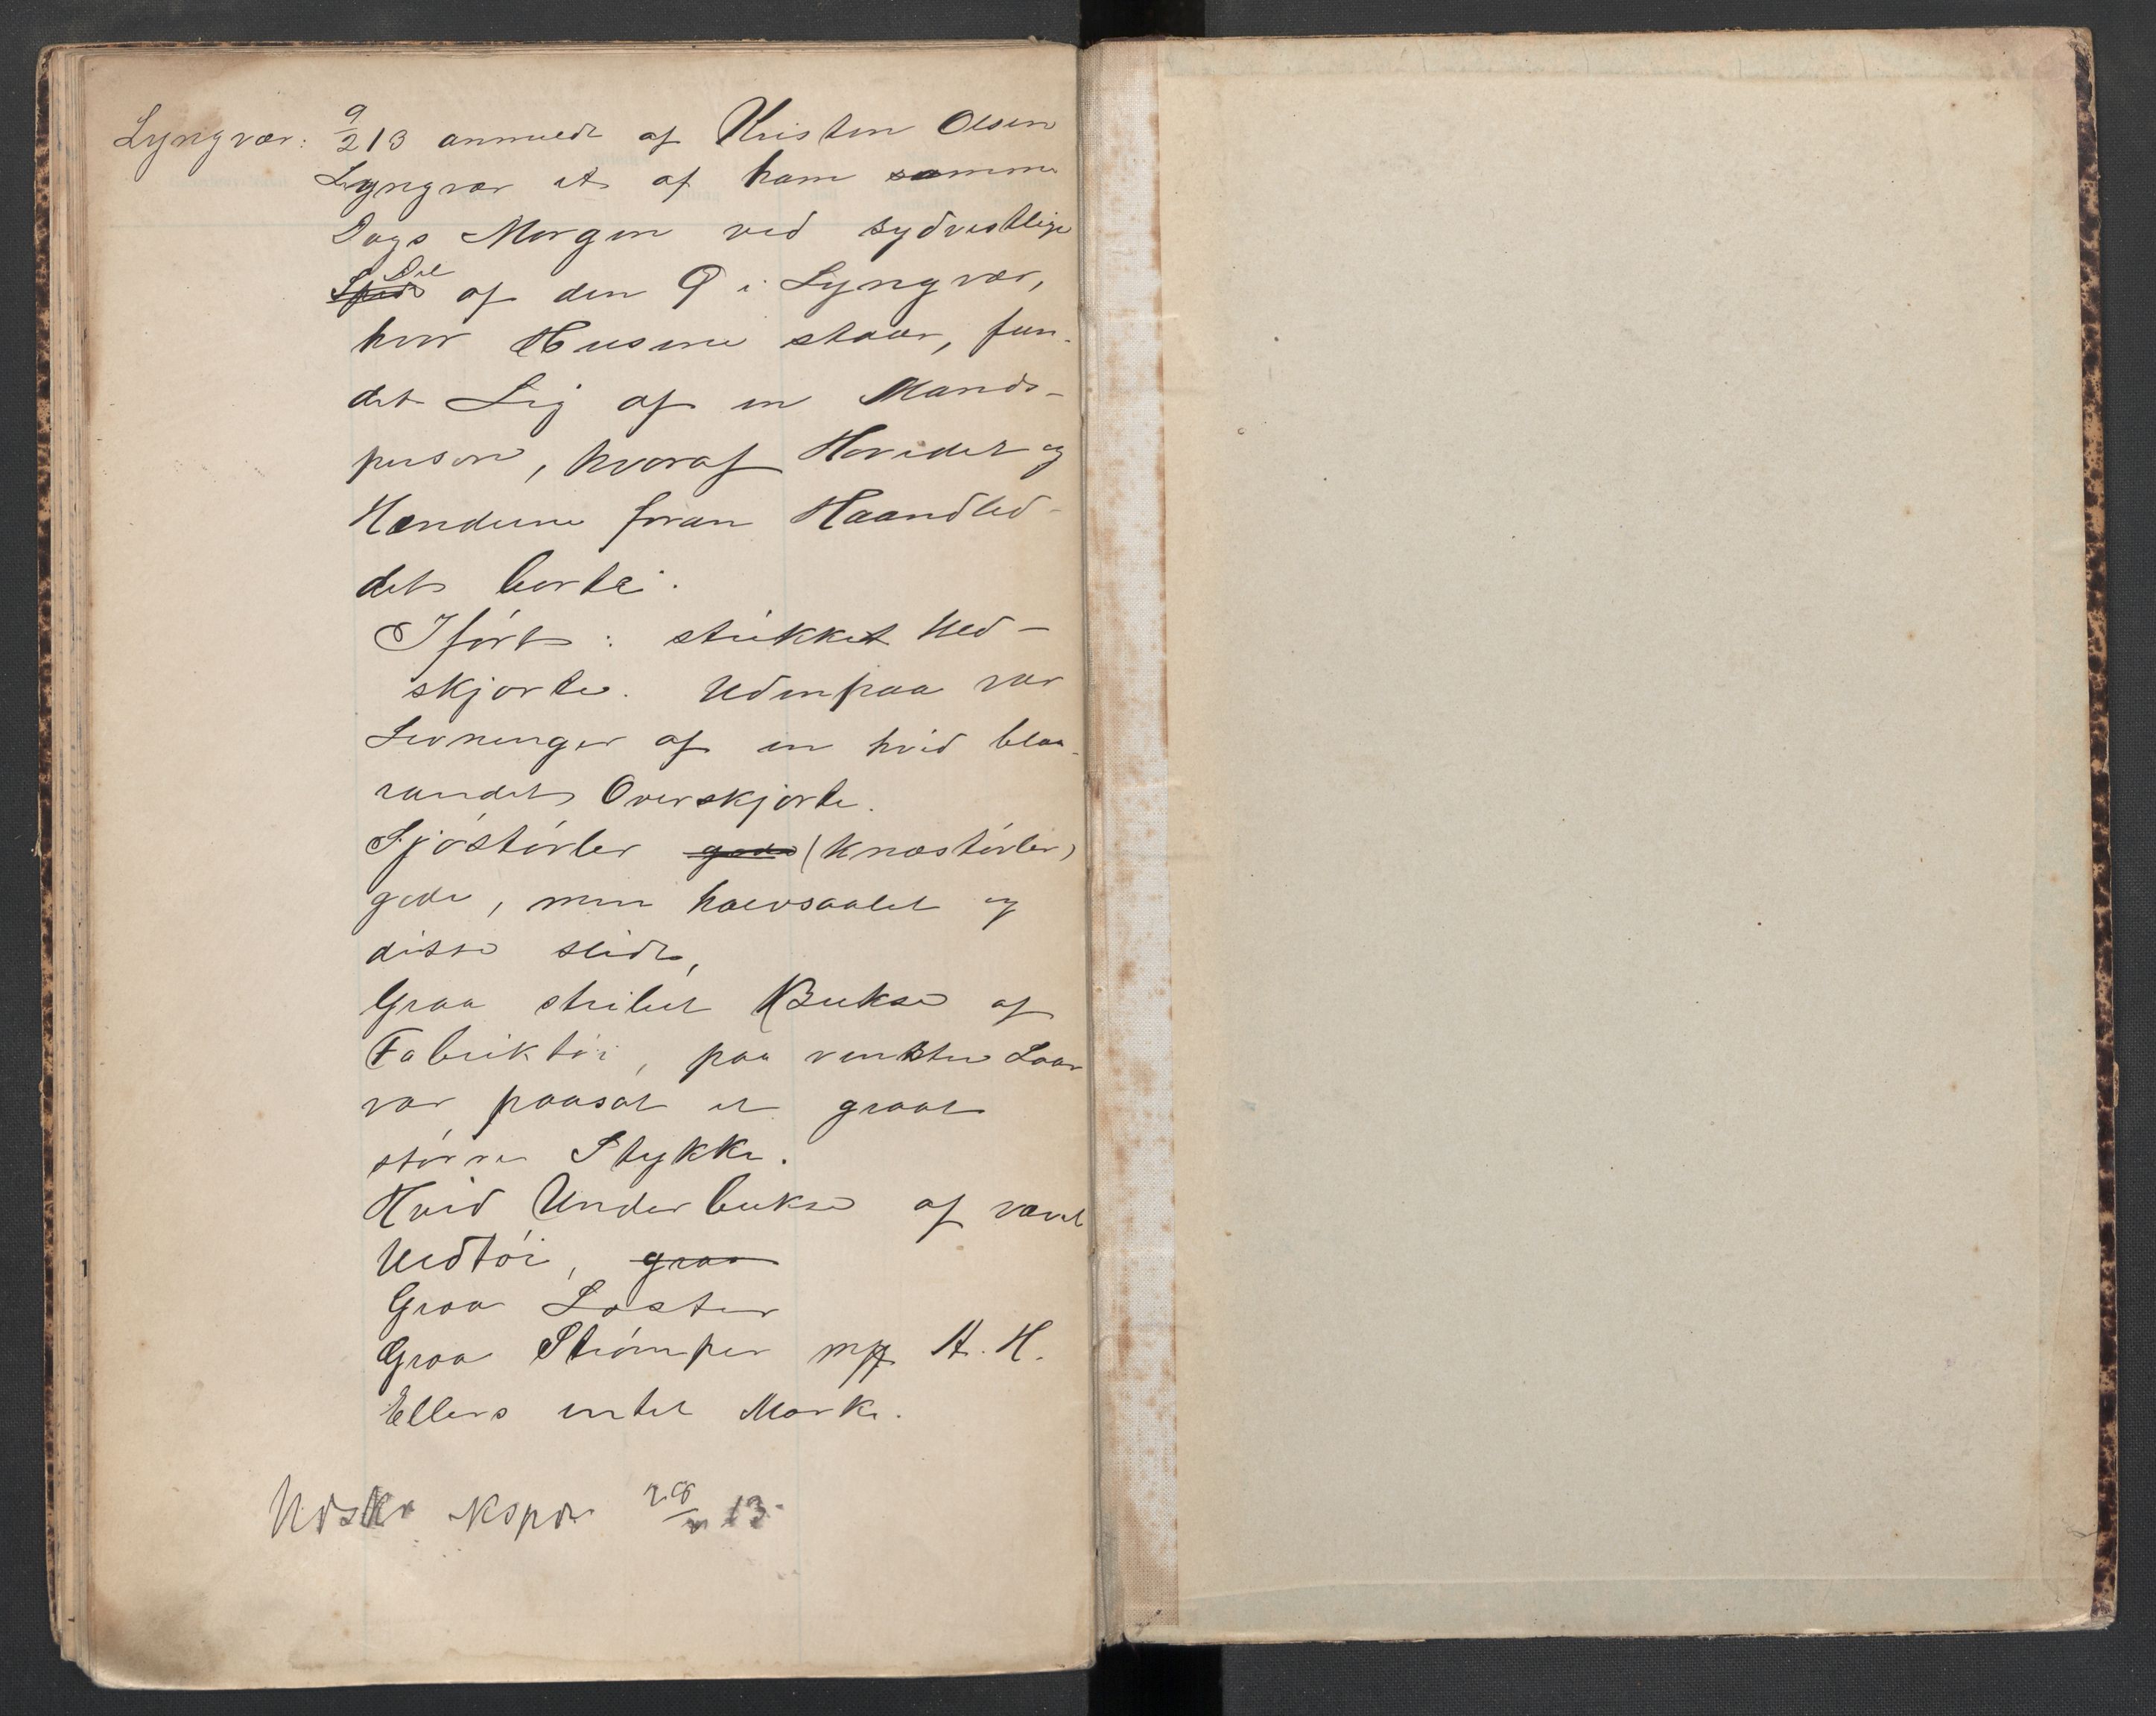 Lyngvær: 9/2 13 anmeldt af Kristen Olsen
Lyngvær at af ham samme
Dags Morgen ved sydvestlige
Spids Del af den Ø i Lyngvær,
hvor Husene staar, fun-
det Lig af en Mands-
person, hvoraf Hovedet og
Hænderne foran Haandled-
det borte.
Iført: strikket Uld-
skjorte. Udenpaa var
Levninger af en hvid blaa-
randet Overskjorte.
Sjøstøvler gode (Knæstøvler)
gode, men halvsaalet og
disse slidt,
Graa stribet Bukse af
Fabriktøi, paa venstre Laar
var paasat et graat
større Stykke.
Hvid Underbukse af vævet
Uldtøi, graa
Graa Læster
Graa Strømper mrk A. H.
Ellers intet Mærke.
28/ 13